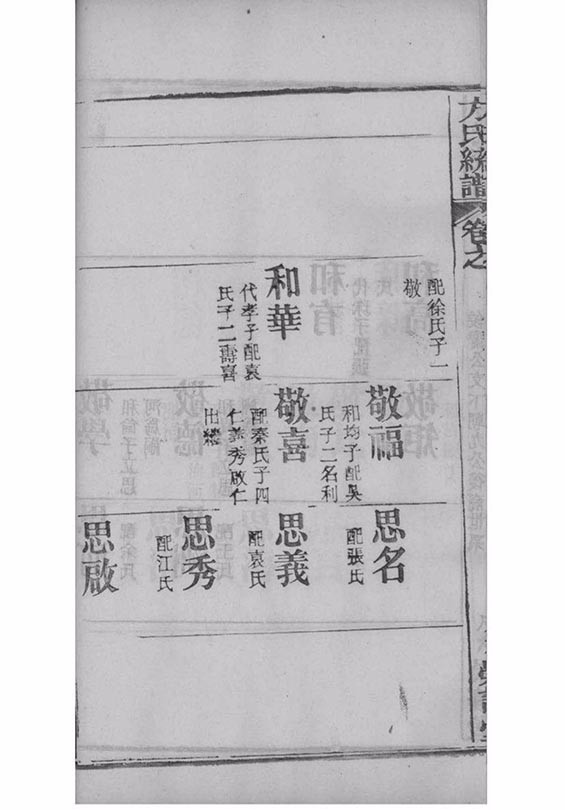 方氏統譜
卷之
配徐氏子一
敬
和華
代孝子配袁
氏子二壽喜
敬福
和均子配吳
氏子二名利
敬喜
配秦氏子四
仁義秀啟仁
出繼
思名
配張氏
思義
配袁氏
思秀
配江氏
思啟